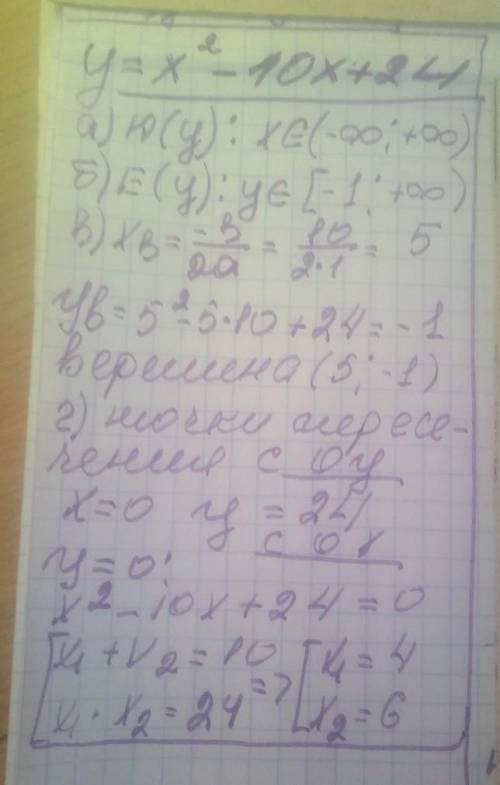 y = x² - 10x + 24
а) D(y): x∈(-∞; +∞)
б) E(y): y∈[-1; +∞)
в) xв = -в/2a = 10/2·1 = 5
yв = 5² - 5·10 + 24 = -1
вершина (5; -1)
г) точки пересе-
чения с оу
x = 0 y = 24
с ох
y = 0:
x² - 10x + 24 = 0
[x₁ + x₂ = 10 [x₁ = 4
x₁ · x₂ = 24 => x₂ = 6